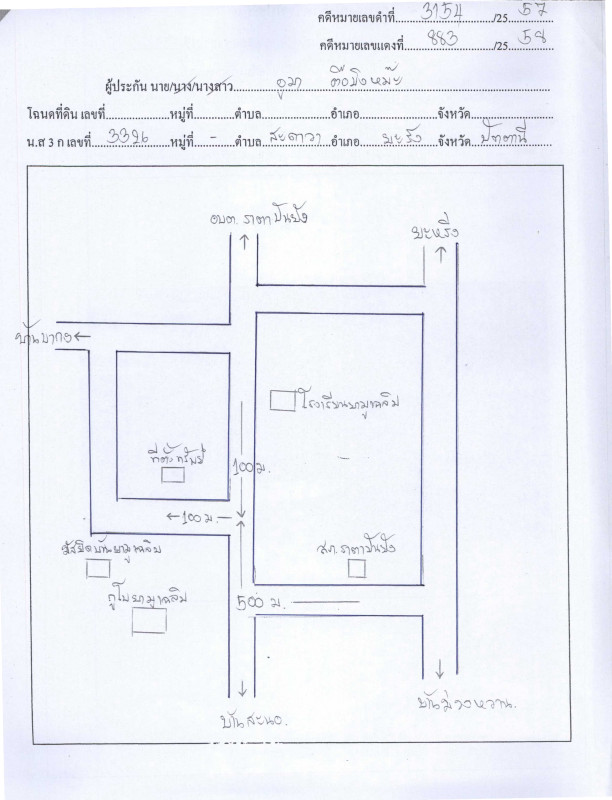 คดีหมายเลขดำที่ 3154 /25 57
คดีหมายเลขแดงที่ 883 /25 58
ผู้ประกัน นาย/นาง/นางสาว อูมา ดือมิงหม๊ะ
โฉนดที่ดิน เลขที่ หมู่ที่ ตำบล อำเภอ จังหวัด
น.ส 3 ก เลขที่ 3326 หมู่ที่ - ตำบล สะดาวา อำเภอ ยะรัง จังหวัด ปัตตานี
อบต. ราตาปันยัง
ยะหริ่ง
บ้านบากง
โรงเรียนยามูเฉลิม
ที่ตั้งทรัพย์
100 ม.
100 ม.
มัสยิดบ้านยามูเฉลิม
สภ.ราตาปันยัง
กูโบยามูเฉลิม
500 ม.
บ้านม่วงหวาน.
บ้านสะนอ.